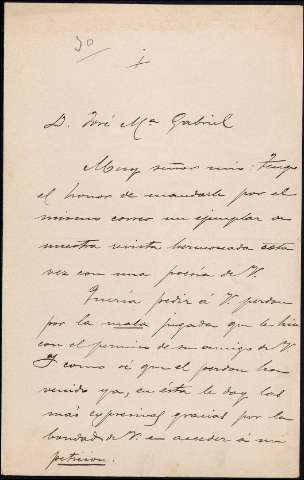 30
+
D. José Mª Gabriel
Muy señor mio: Tengo
el honor de mandarle por el
mismo correo un ejemplar de
nuestra revista hermoseada esta
vez con una poesía de V.
Quería pedir á V. perdon
por la mala jugada que le hice
con el permiso de un amigo de V.
Y como sé que el perdon ha
venido ya, en esta le doy las
más expresivas gracias por la
bondad de V. en acceder á mi
peticion.